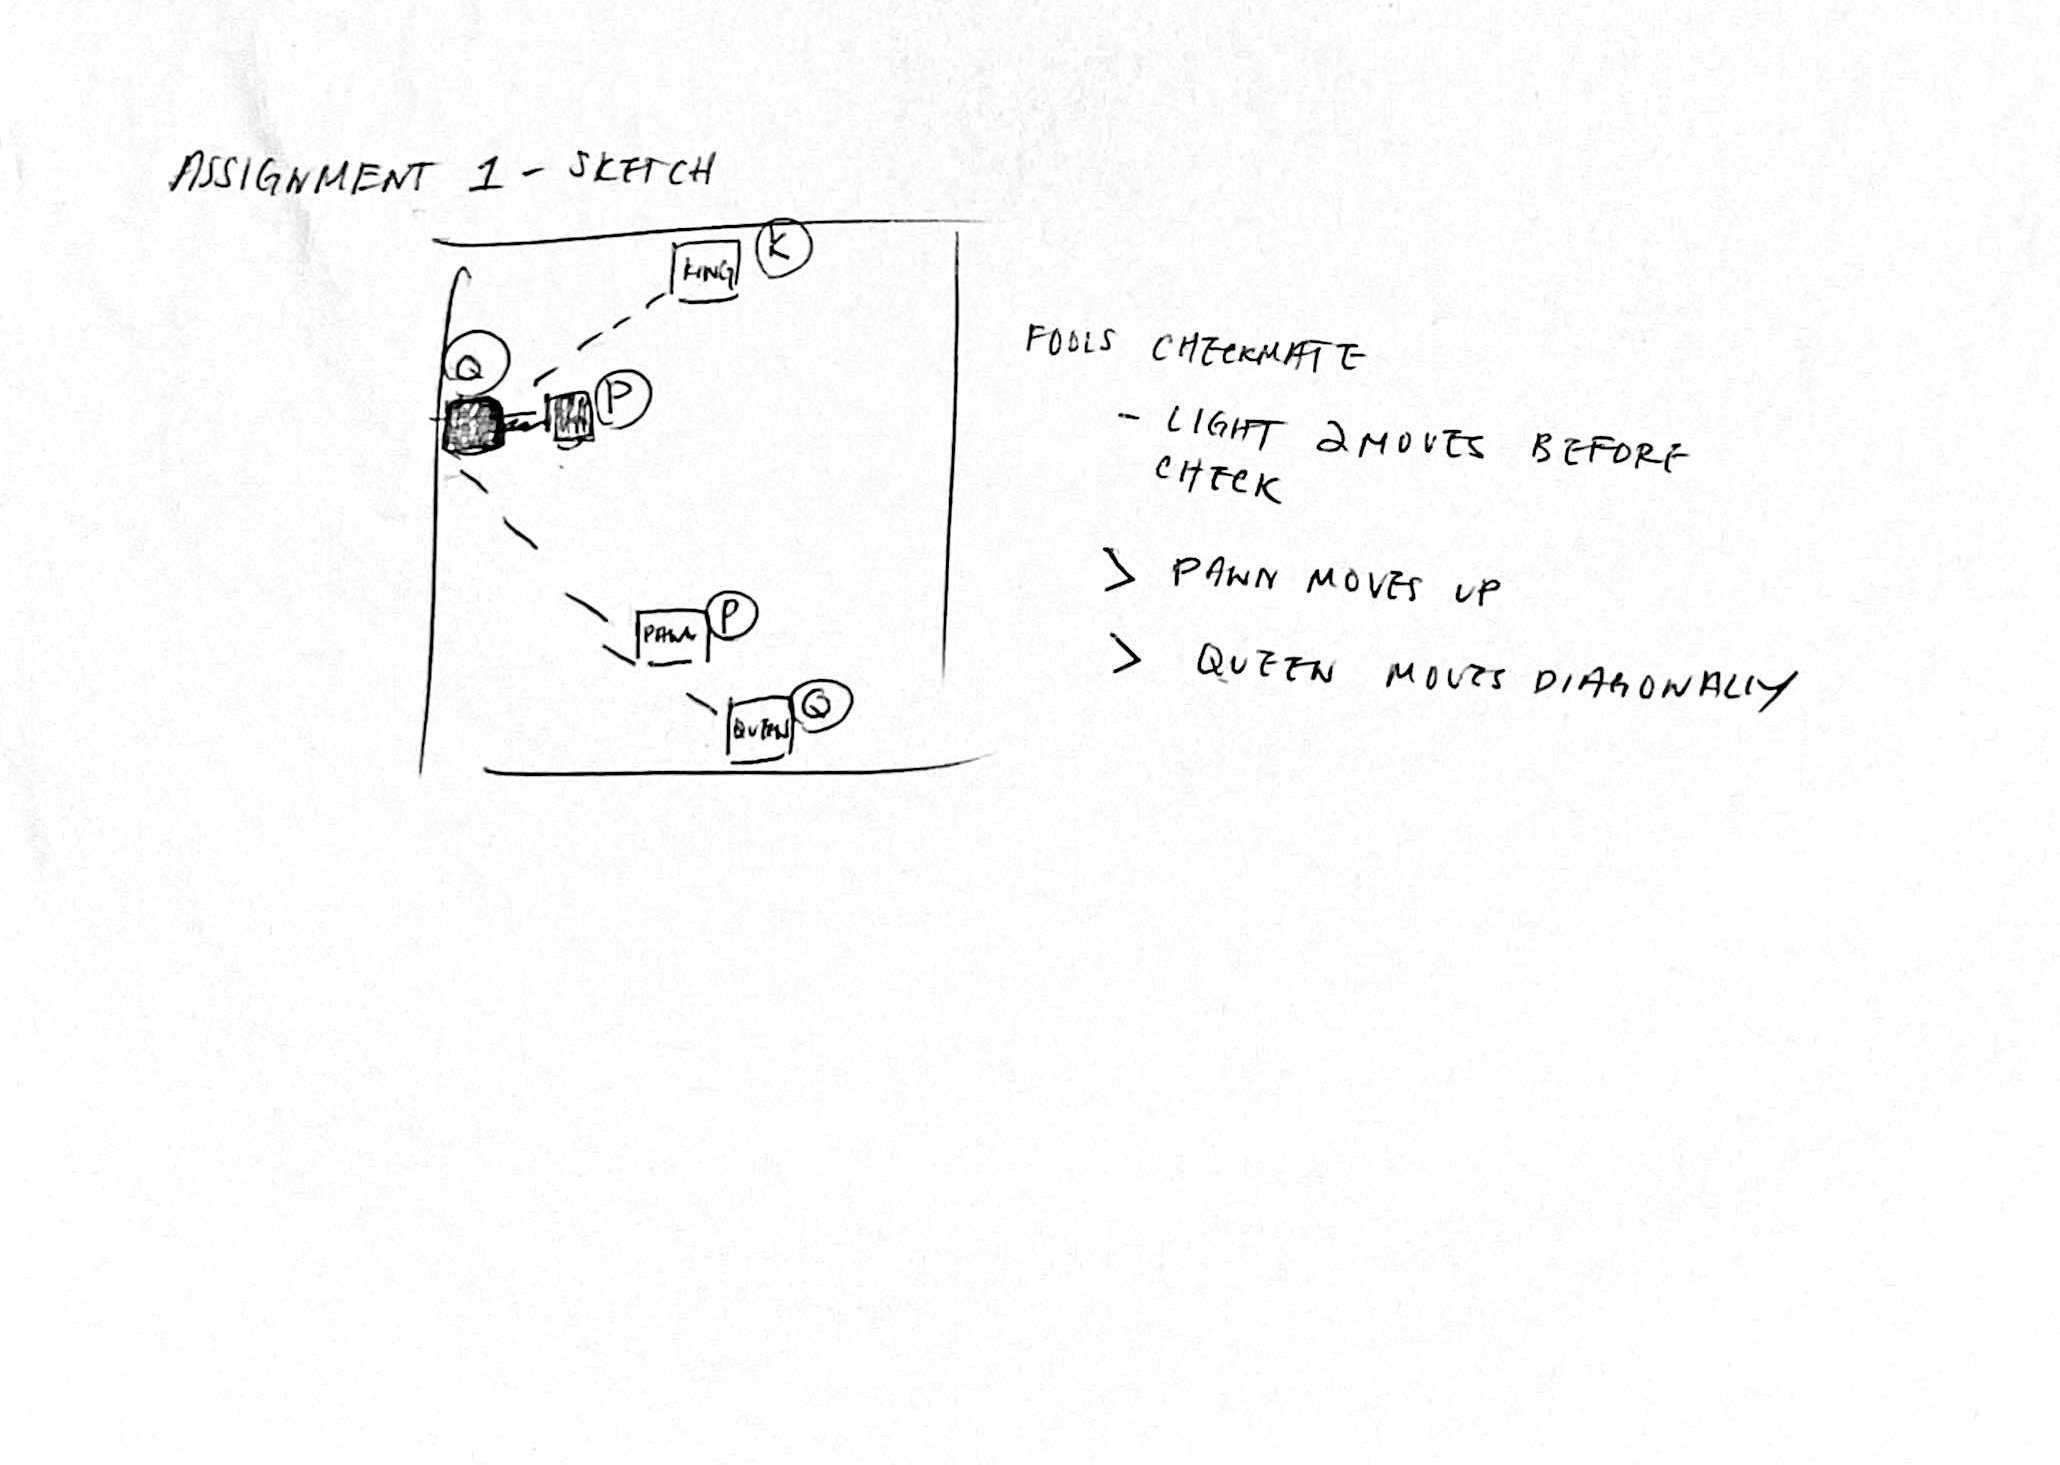 ASSIGNMENT 1 - SKETCH
KING K
Q
P
PAWN P
QUEEN Q
FOOLS CHECKMATE
- LIGHT 2 MOVES BEFORE
CHECK
> PAWN MOVES UP
> QUEEN MOVES DIAGONALLY